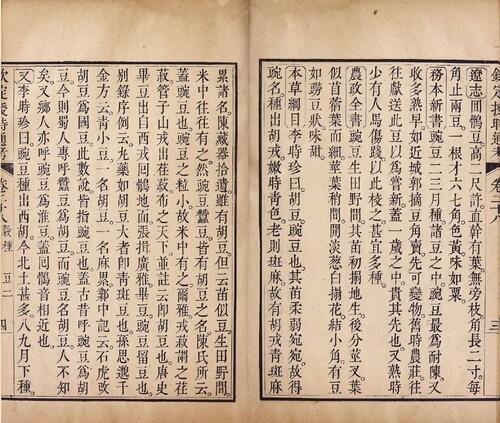 欽定授時通考 卷二十八 三
遼志回鶻豆高二尺許直幹有葉無旁枝角長二寸每
角止兩豆一根才六七角色黃味如粟
務本新書豌豆二三月種諸豆之中豌豆最爲耐陳又
收多熟早如近城郭摘豆角賣先可變物舊時農莊往
往獻送此豆以爲嘗新蓋一歲之中貴其先也又熟時
少有人馬傷踐以此校之甚宜多種
農政全書豌豆生田野間其苗初搨地生後分莖叉葉
似苜蓿葉而細莖葉稍間開淡葱白搨花結小角有豆
如豆狀味甜
本草綱目李時珍曰胡豆豌豆也其苗柔弱宛宛故得
豌名種出胡戎嫩時靑色老則斑麻故有胡戎靑斑麻
累諸名陳藏器拾遺雖有胡豆但云苗似豆生田野間
米中往往有之然豌豆蠶豆皆有胡豆之名陳氏所云
蓋豌豆也豌豆之粒小故米中有之爾雅戎菽謂之荏
菽管子山戎出荏菽布之天下並註云卽胡豆也唐史
畢豆出自西戎回鶻地面張揖廣雅畢豆豌豆留豆也
別錄序例云丸藥如胡豆大者卽靑斑豆也孫思邈千
金方云靑小豆一名胡豆一名麻累鄴中記云石虎改
胡豆爲國豆此數說皆指豌豆也蓋古昔呼豌豆爲胡
豆今則蜀人專呼蠶豆爲胡豆而豌豆名胡豆人不知
矣又鄉人亦呼豌豆爲淮豆蓋回鶻音相近也
又李時珍曰豌豆種出西胡今北土甚多八九月下種
欽定授時通考 卷二十八 穀種 豆二 四